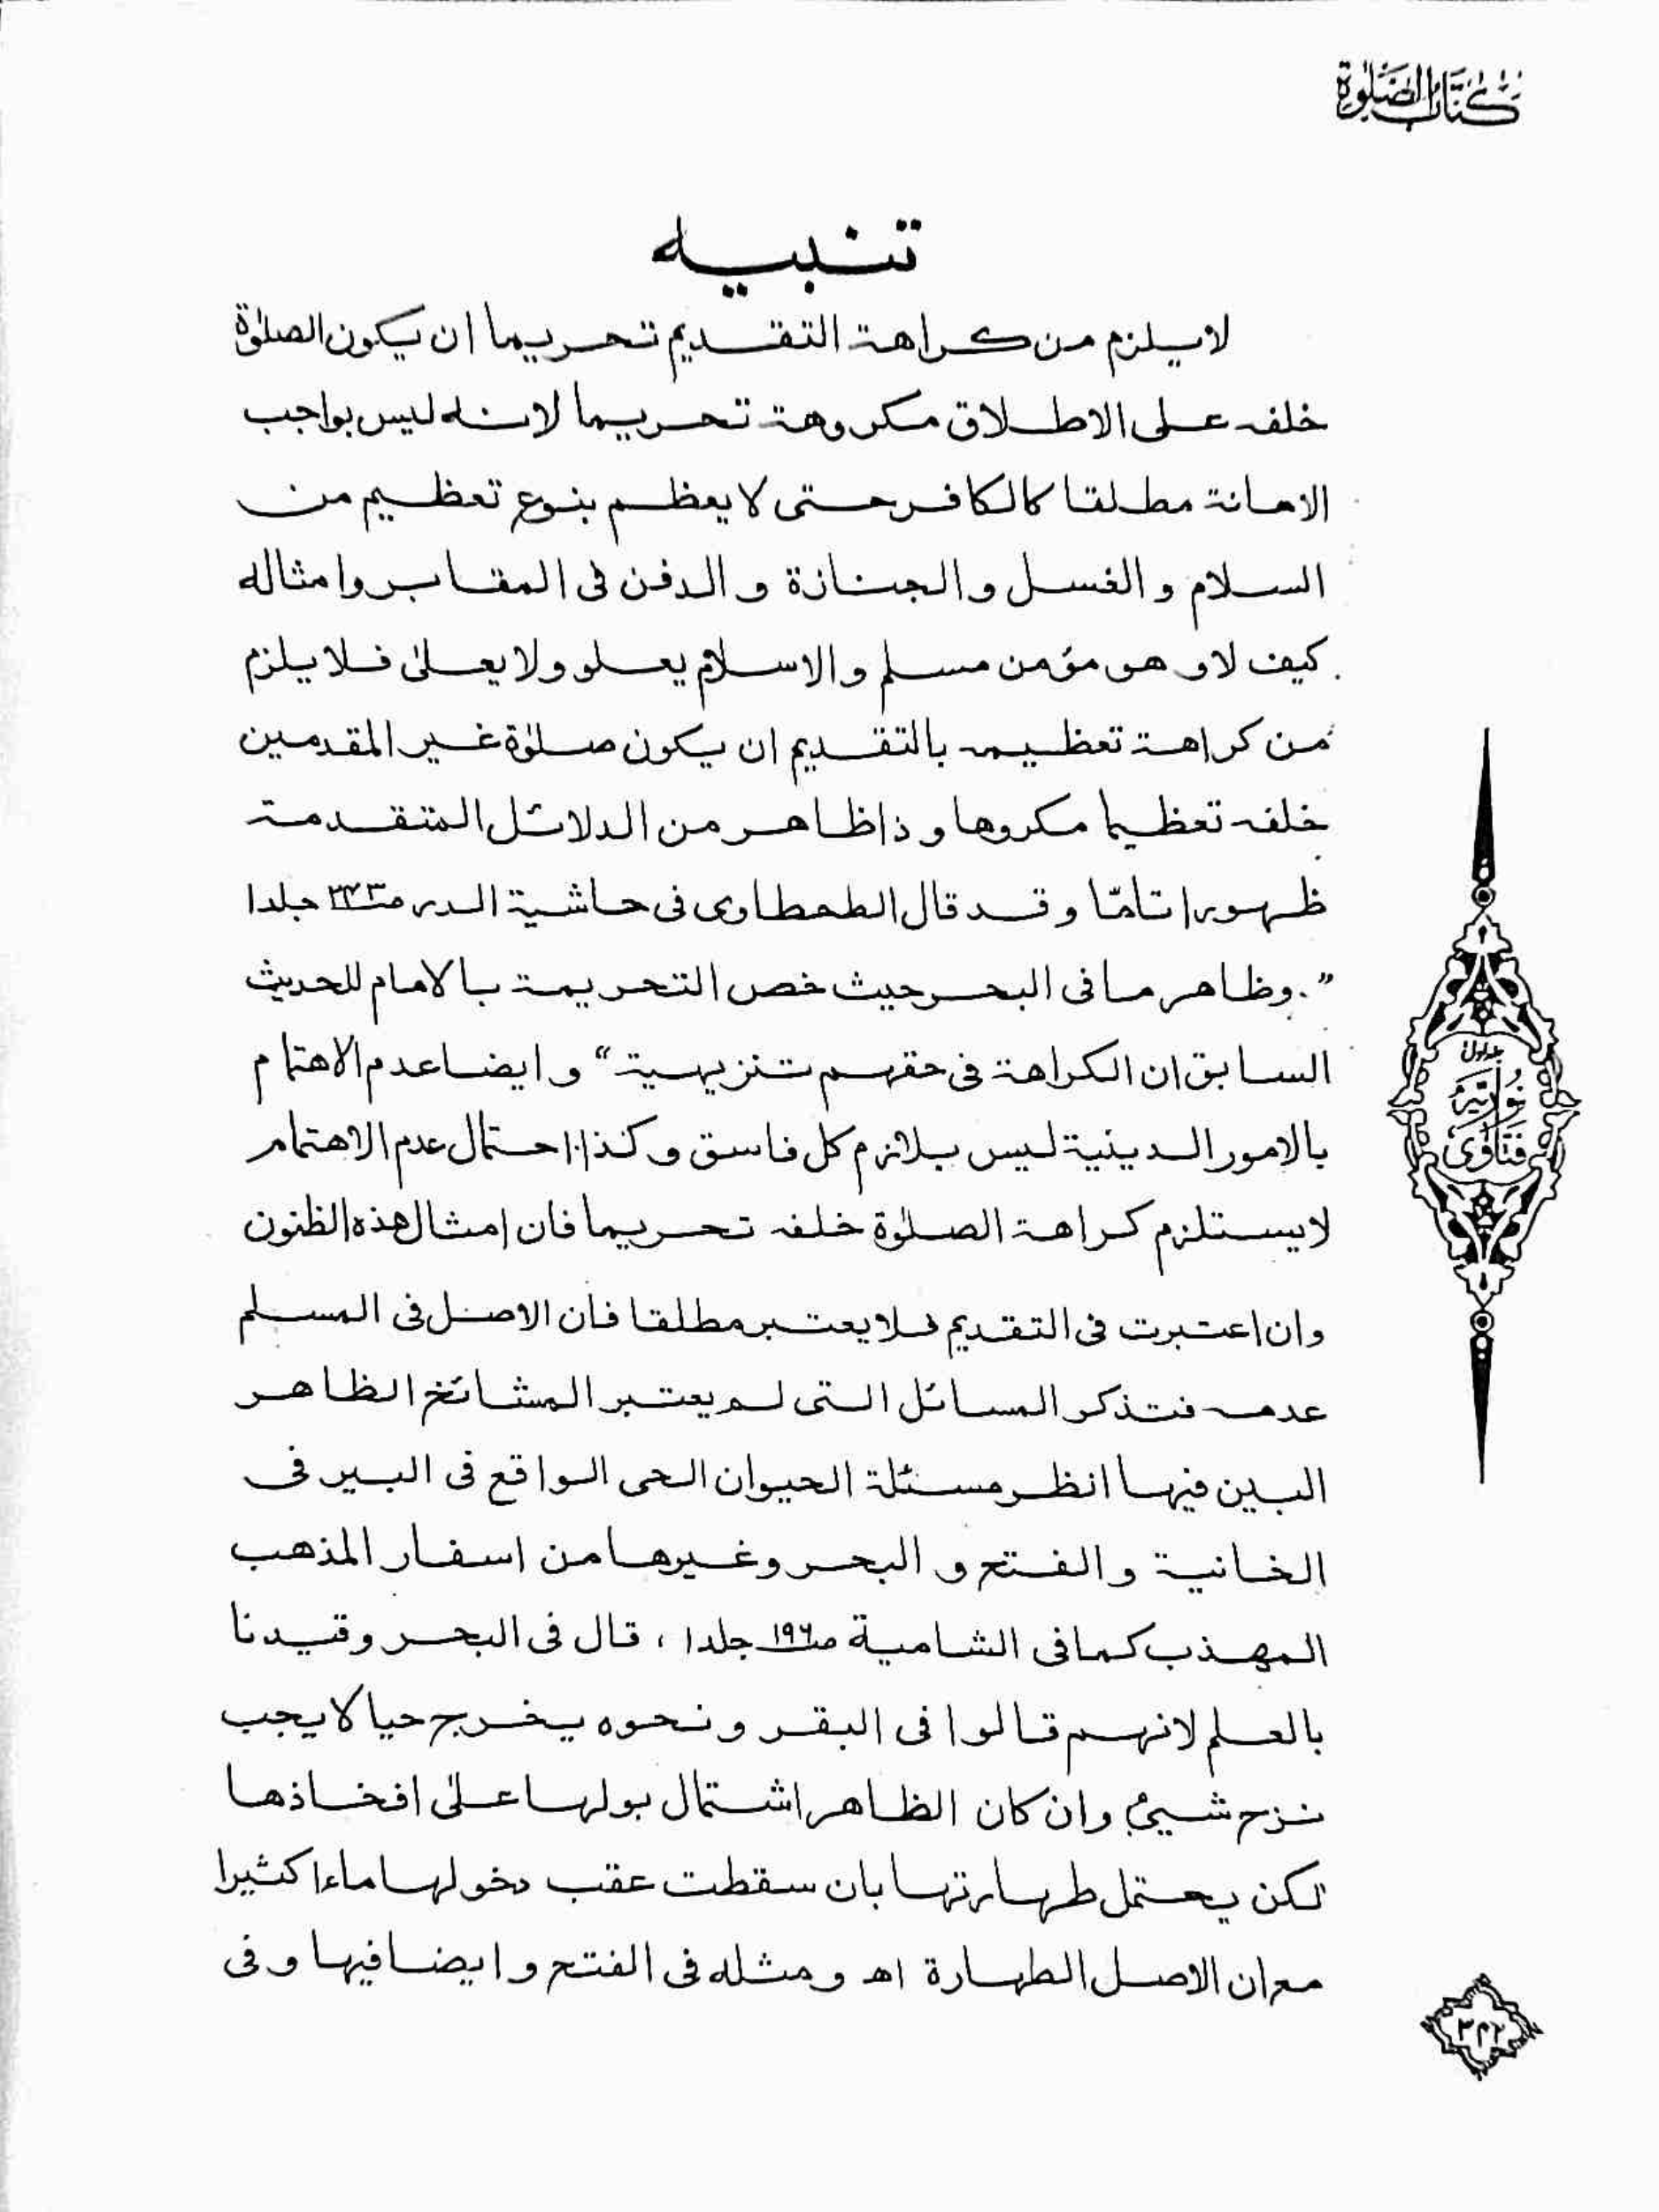 كتاب الصلوٰة
تنبيه
لا يلزم من كراهة التقديم تحريما ان يكون الصلوٰة
خلفه على الاطلاق مكروهة تحريما لانه ليس بواجب
الاهانة مطلقا كالكافر حتى لا يعظم بنوع تعظيم من
السلام و الغسل و الجنازة و الدفن فى المقابر و امثاله
كيف لا و هو مؤمن مسلم و الاسلام يعلو ولا يعلىٰ فلا يلزم
من كراهة تعظيمه بالتقديم ان يكون صلوٰة غير المقدمين
خلفه تعظيما مكروها و ذا ظاهر من الدلائل المتقدمة
ظهورا تامّا و قد قال الطحطاوى فى حاشية الدر جلد ا
”. وظاهر ما فى البحر حيث خص التحريمة بالامام للحديث
السابق ان الكراهة فى حقهم تنزيهية“ و ايضا عدم الاهتمام
بالامور الدينية ليس بلازم كل فاسق و كذا احتمال عدم الاهتمام
لا يستلزم كراهة الصلوٰة خلفه تحريما فان امثال هذه الظنون
وان اعتبرت فى التقديم فلا يعتبر مطلقا فان الاصل فى المسلم
عدمه فتذكر المسائل التى لم يعتبر المشائخ الظاهر
البين فيها انظر مسئلة الحيوان الحى الواقع فى البير فى
الخانية و الفتح و البحر وغيرها من اسفار المذهب
المهذب كما فى الشامية صـ۱۹۶ جلد ا ، قال فى البحر وقيدنا
بالعلم لانهم قالوا فى البقر و نحوه يخرج حيا لا يجب
نزح شيئ وان كان الظاهر اشتمال بولها علىٰ افخاذها
لكن يحتمل طهارتها بان سقطت عقب دخولها ماءا كثيرا
مع ان الاصل الطهارة اھ و مثله فى الفتح و ايضا فيها و فى
جلد اول
نوریہ
فتاوٰی